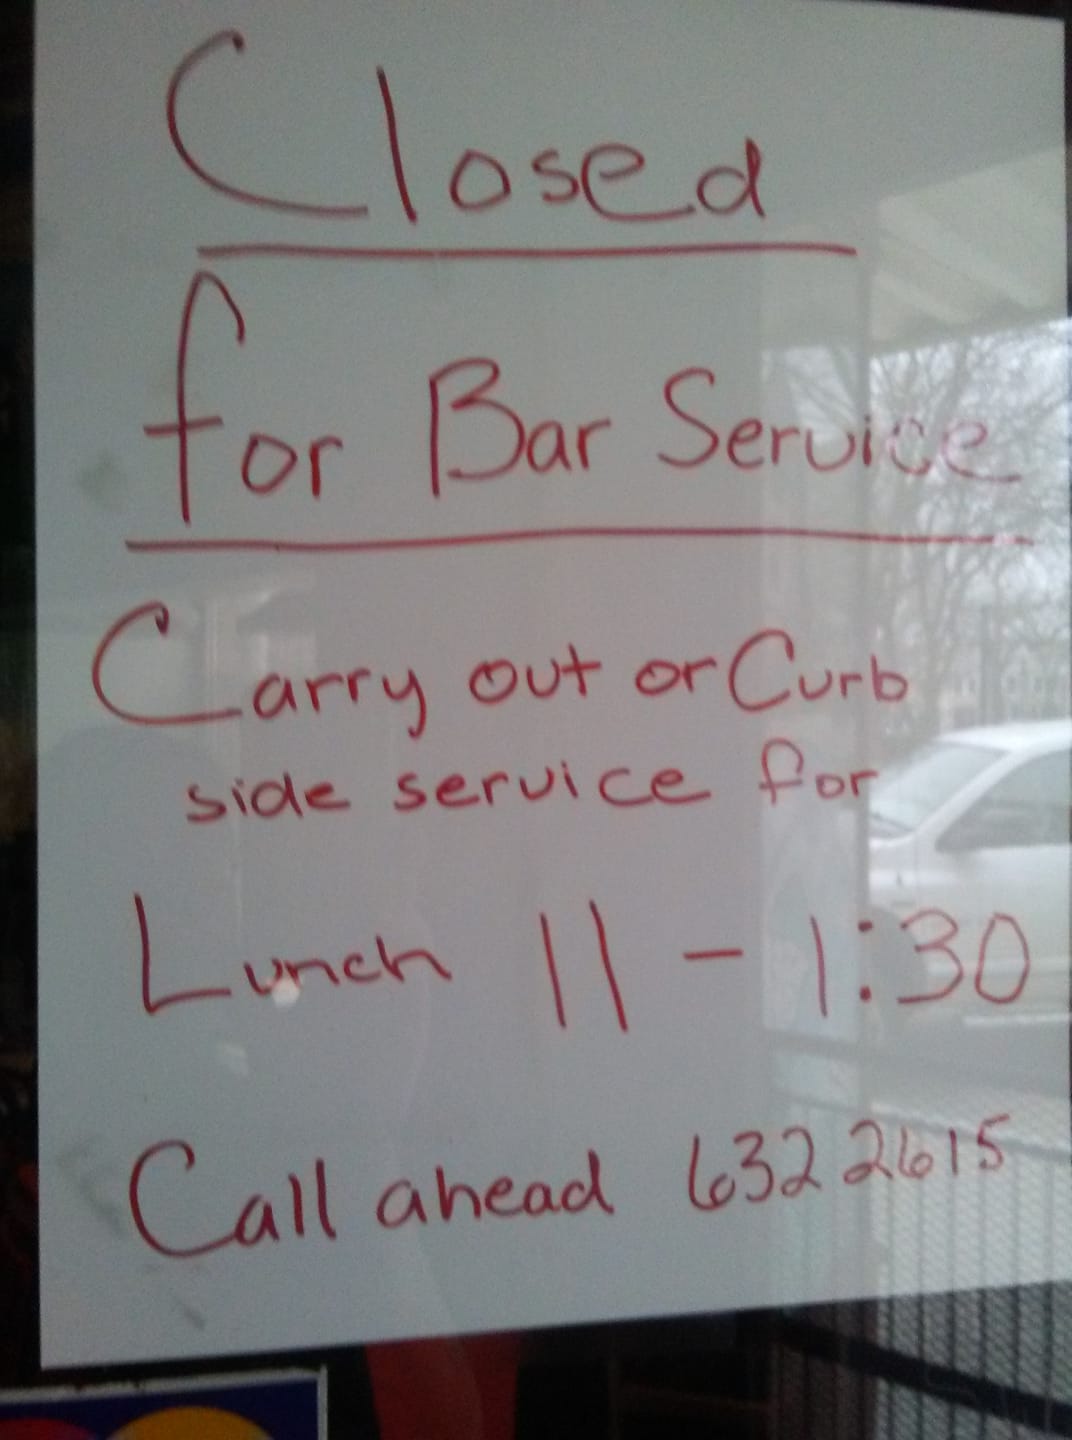 Closed
for Bar Service
Carry out or Curb
side service for
Lunch 11 - 1:30
Call ahead 632 2615